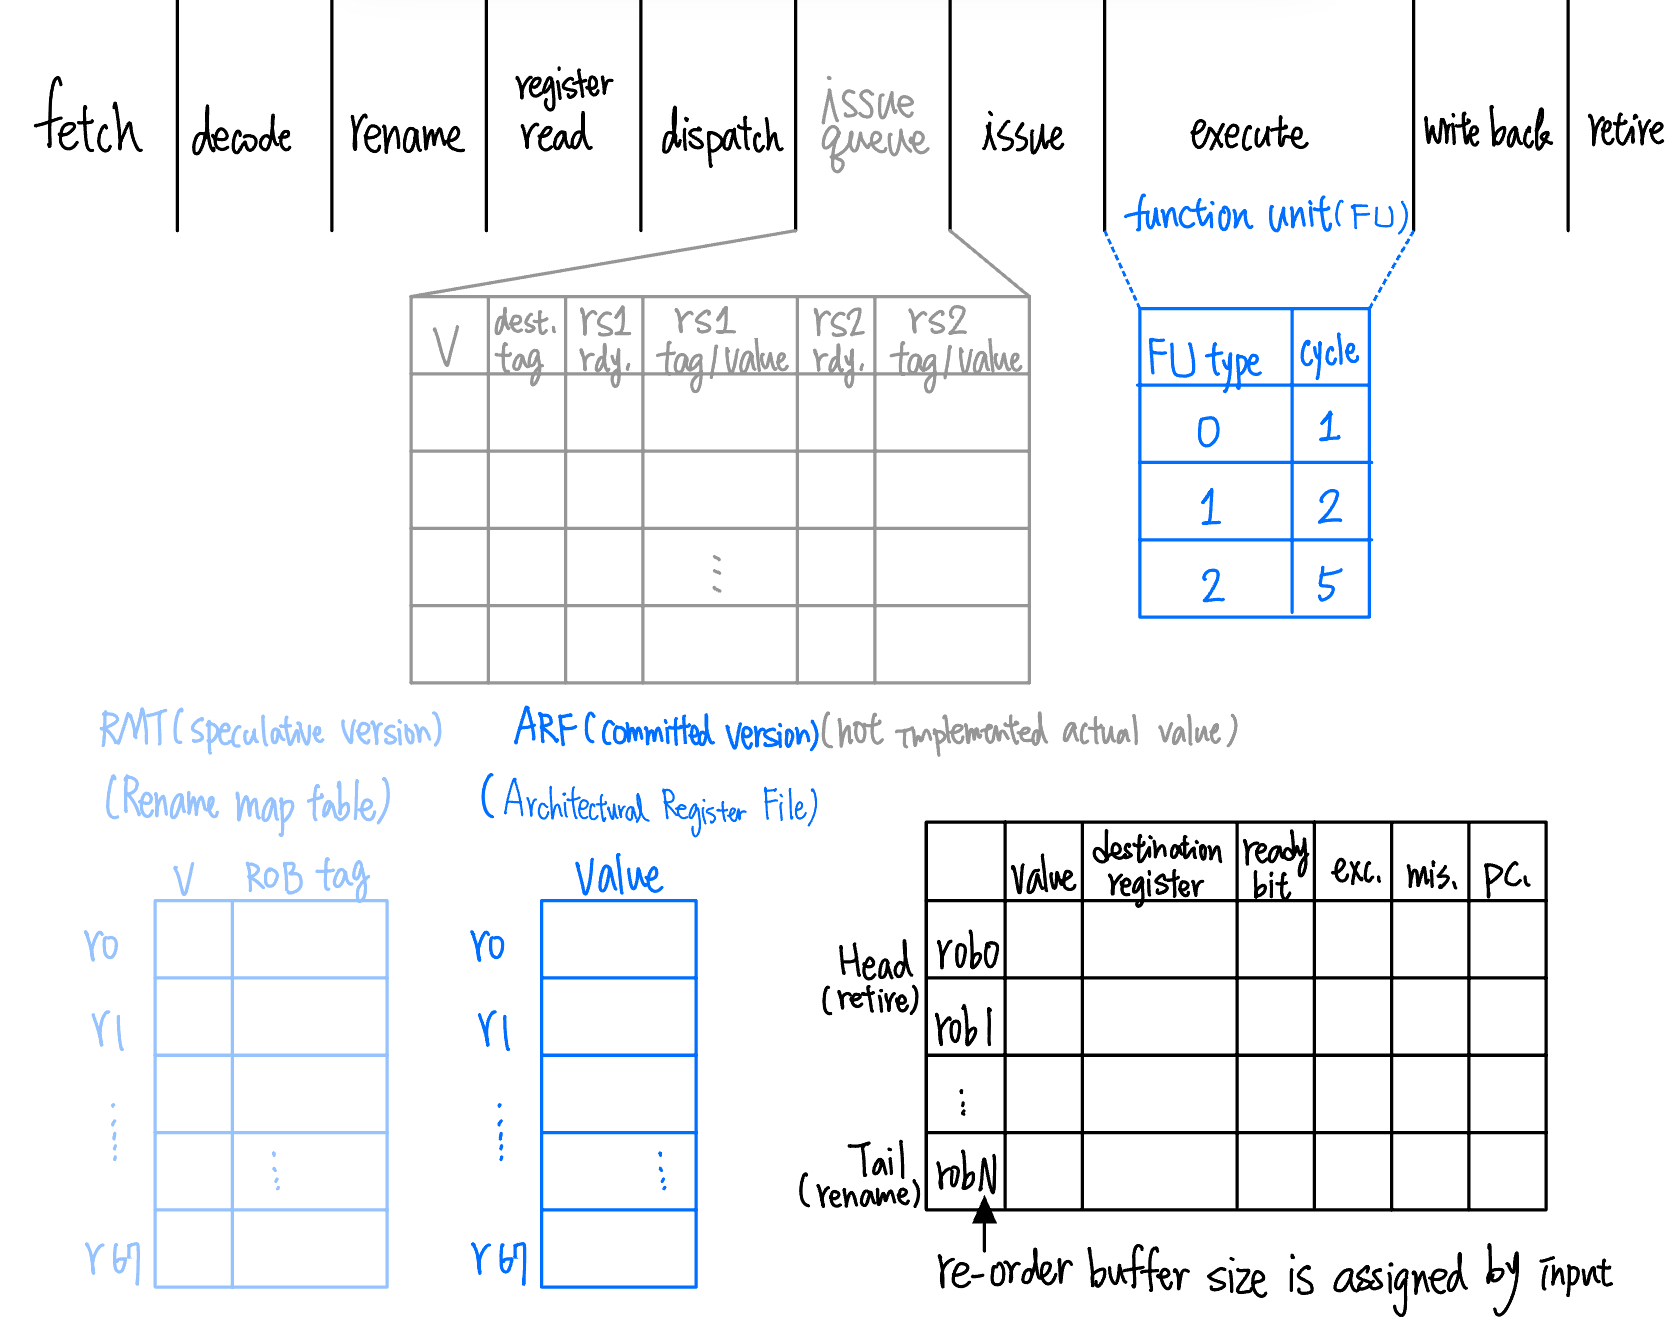 fetch
decode
rename
register
read
dispatch
issue
queue
issue
execute
write back
retire
function unit (FU)
V
dest.
tag
rs1
rdy.
rs1
tag/value
rs2
rdy.
rs2
tag/value
FU type
cycle
0
1
1
2
2
5
RMT (speculative version)
(Rename map table)
ARF (committed version) (not implemented actual value)
(Architectural Register File)
V
ROB tag
r0
r1
r67
Value
r0
r1
r67
value
destination
register
ready
bit
exc.
mis.
pc.
Head
(retire)
rob0
rob1
Tail
(rename)
robN
re-order buffer size is assigned by input